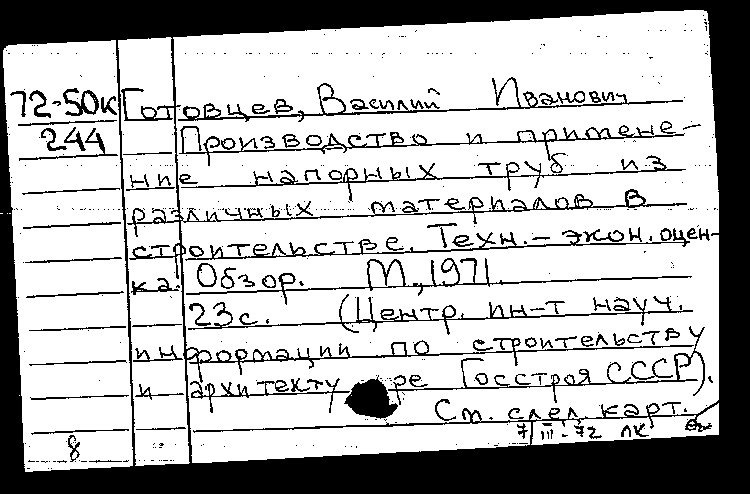 72-50к Готовцев, Василий Иванович
244 Производство и примене-
ние напорных труб из
различных материалов в
строительстве. Техн.-экон. оцен-
ка. Обзор. М., 1971.
23с. (Центр. ин-т науч.
информации по строительству
и архитектуре Госстроя СССР).
См. след. карт.
7/III-72 ЛК
8